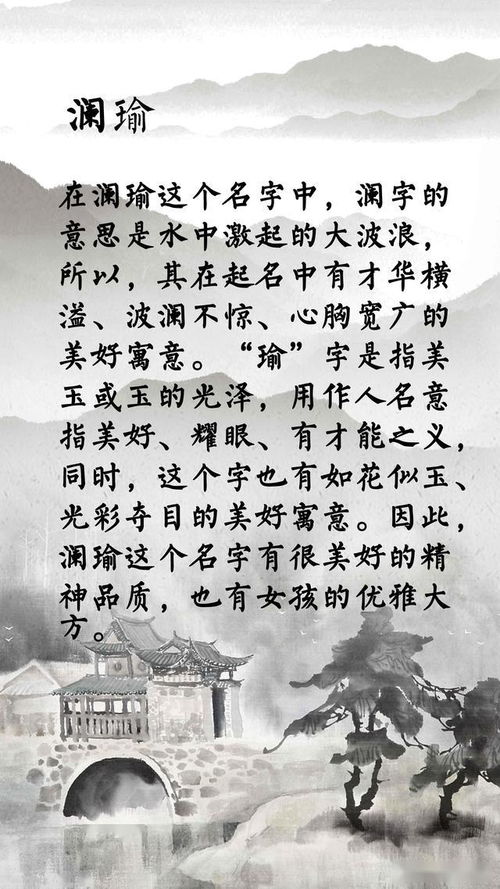 澜瑜
在澜瑜这个名字中，澜字的
意思是水中激起的大波浪，
所以，其在起名中有才华横
溢、波澜不惊、心胸宽广的
美好寓意。“瑜”字是指美
玉或玉的光泽，用作人名意
指美好、耀眼、有才能之义，
同时，这个字也有如花似玉、
光彩夺目的美好寓意。因此，
澜瑜这个名字有很美好的精
神品质，也有女孩的优雅大
方。